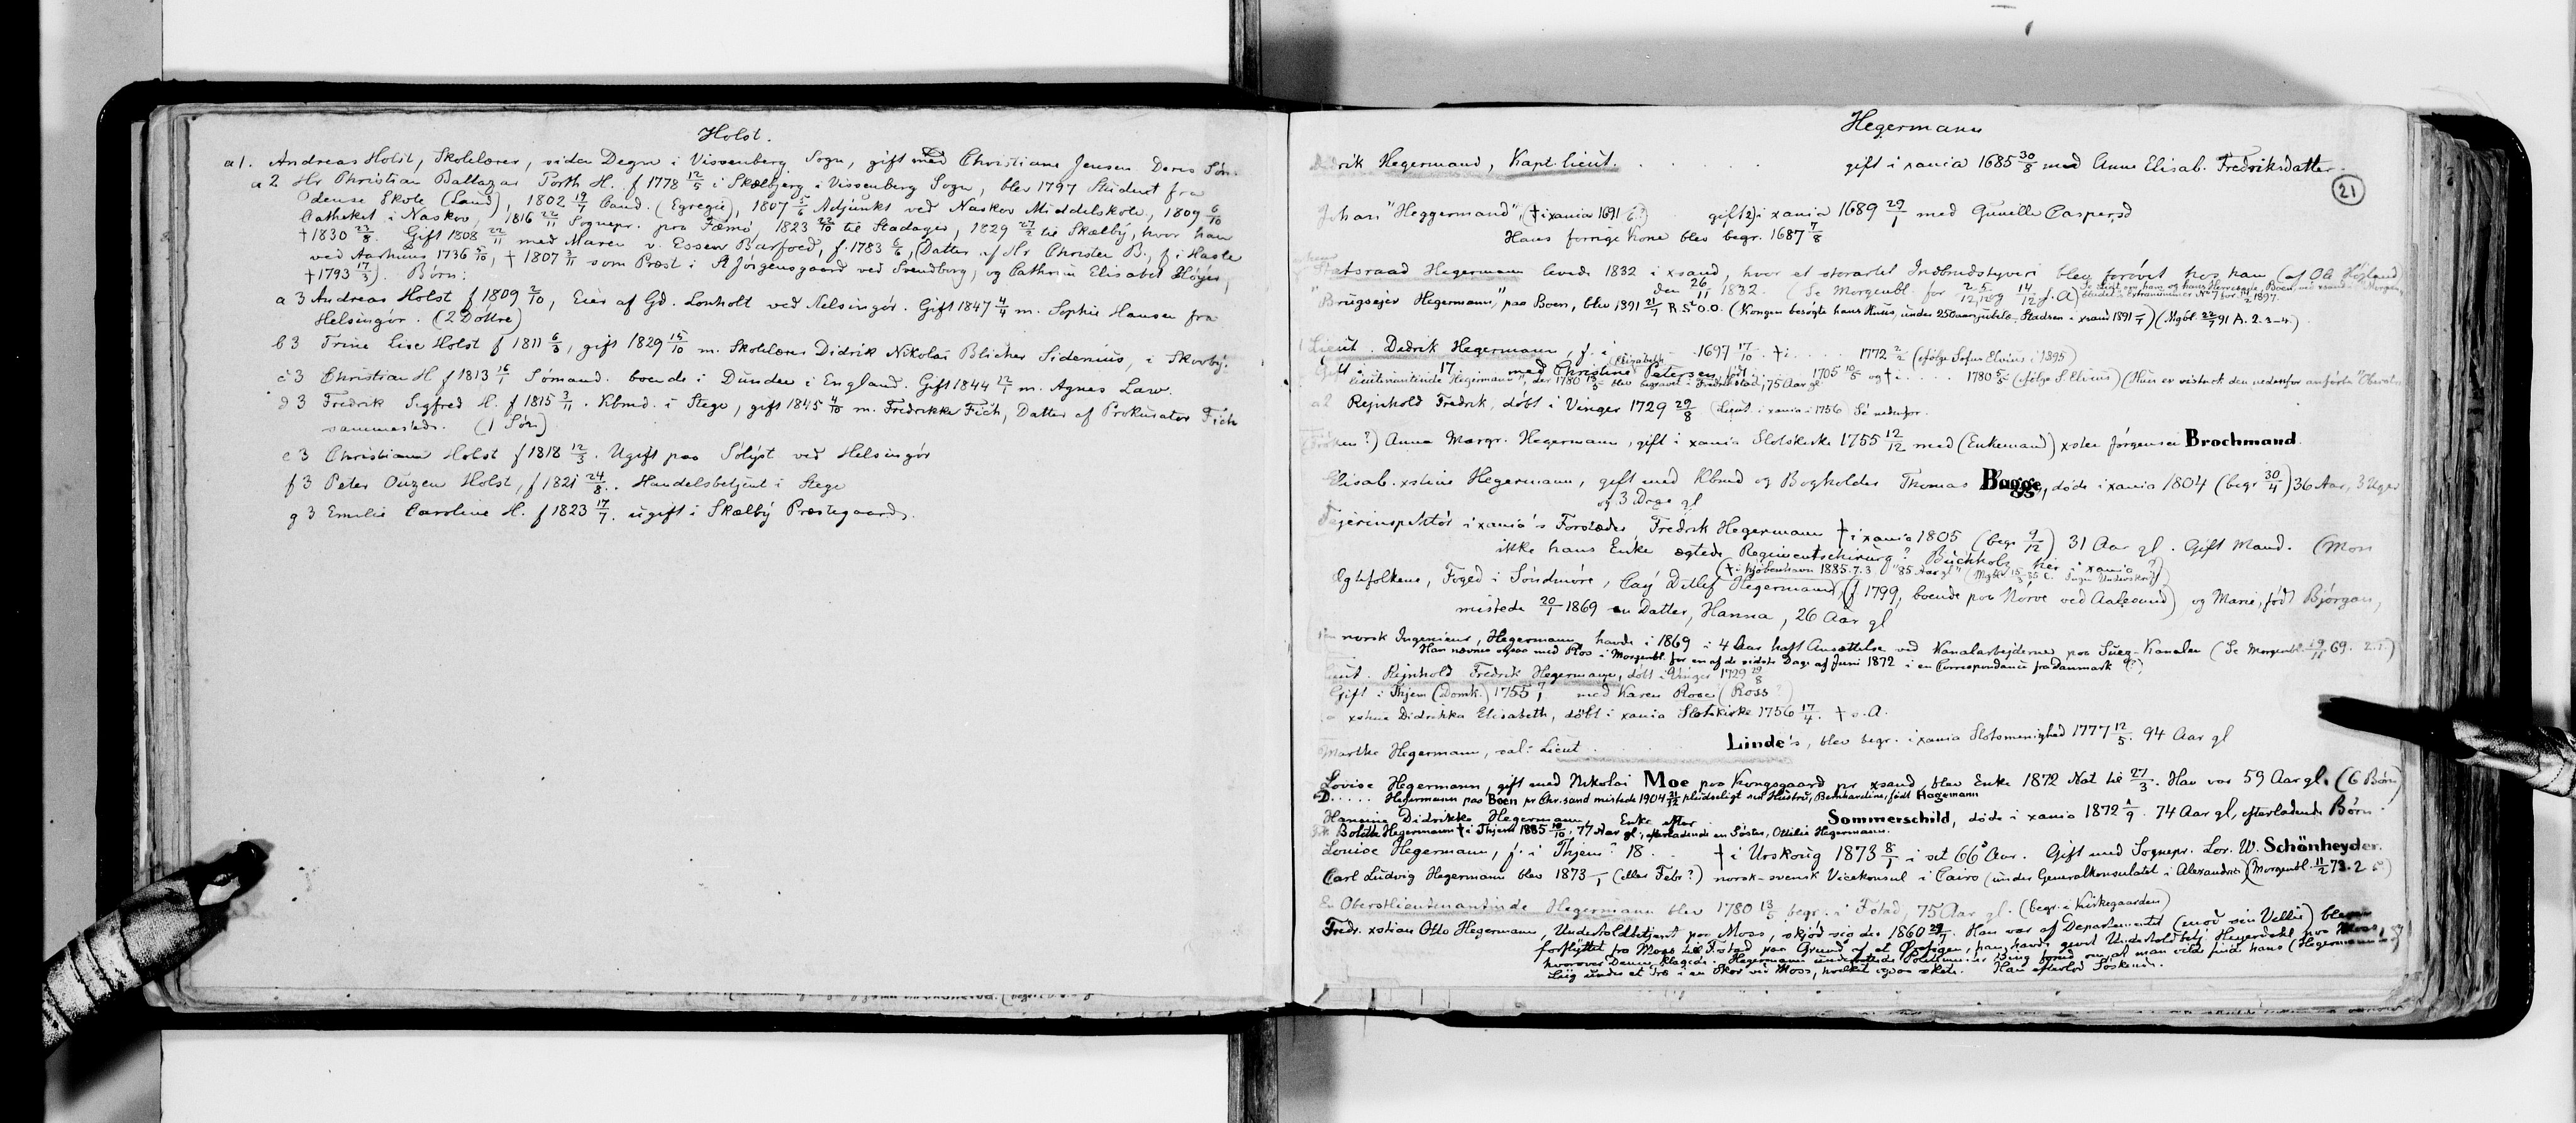 Holst.
a1. Andreas Holst, Skolelærer, siden Degn i Vissenberg Sogn, gift med Christiane Jensen. Deres Søn:
a2 Hr Christian Baltazar Porth H. f 1778 12/5 i Skælbjerg i Vissenberg Sogn, blev 1797 Student fra
Odense Skole (Laud), 1802 19/7 Cand. (Egregie), 1807 5/6 Adjunkt ved Naskov Middelskole, 1809 6/10
Catheket i Naskov, 1816 22/11 Sognepr. paa Fæmø, 1823 22/10 til Stadager, 1829 27/2 til Skælby, hvor han
†1830 23/8. Gift 1808 22/11 med Maren v. Essen Barfoed, f. 1783 6/6, (Datter af Hr Christen B., f i Hasle
ved Aarhuus 1736 5/10, † 1807 3/11 som Præst i St Jørgensgaard ved Svendborg, og Cathrin Elisabet Høyer,
†1793 17/3). Børn:
a 3 Andreas Holst f 1809 2/10, Eier af Gd. Lonholt ved Helsingør. Gift 1847 4/4 m. Sophie Hansen fra
Helsingør. (2 Døttre)
b3 Trine Lise Holst f 1811 6/3, gift 1829 15/10 m. Skolelærer Didrik Nikolai Blicher Sidenius, i Skovby.
c3 Christian H f 1813 16/1 Sømand. boende i Dundee i England. Gift 1844 12/1 m. Agnes Law.
d 3 Fredrik Sigfred H. f 1815 3/11. Kbmd. i Stege, gift 1845 4/10 m. Fredrikke Fich, Datter af Prokurator Fich
sammesteds. (1 Søn)
e 3 Christiane Holst f 1818 12/3. Ugift paa Sølyst ved Helsingør
f 3 Peter Ouzen Holst, f 1821 24/8. Handelsbetjent i Stege
g 3 Emilie Caroline H. f 1823 17/7. ugift i Skælby Præstegaard.
Hegermann
21
Didrik Hegermand, Kapt. lieut. . . . . gift i xania 1685 30/8 med Anne Elisab. Fredriksdatter.
Johan "Heggermand", († i xania 1691 6/?) gift 2) i xania 1689 29/1 med Gunille Caspersd
Hans forrige Kone blev begr. 1687 7/8
Statsraad Hegermann levede 1832 i xsand, hvor et storartet Indbrudstyveri blev forøvet hos ham (af Ole Høiland
den 26/11 1832. (Se Morgenbl. for
"Brugsejer Hegermann," paa Boen, blev 1891 21/7 R. St O.O. (Kongen besøgte hans Huus, under 250aarsjubilæ. Staden i xsand 1891) (Mgbl. 22/7 91 A. 2. 3-4.)
Lieut. Didrik Hegermann, f. i 1697 17/10. † i . . . . 1772 2/2 (ifølge Sofus Elvius i 1895)
Gift 17 med Christine Elizabeth Petersen født . . . 1705 10/5 og † i . . . . 1780 5/5 (ifølge S. Elvius) (Hun er vistnok den nedenfor anførte "Oberst
lieutenantinde Hegermann", der 1780 13/5 blev begravet i Fredrikstad, 75 Aar gl.
a2 Rejnhold Fredrik, døbt i Vinger 1729 29/8 (Lieut i xania i 1756) Se nedenfor.
(Frøken?) Anna Margr. Hegermann, gift i xania Slotskirke 1755 12/12 med (Enkemand) xsten Jørgensen Brochmand.
Elisab. xstine Hegermann, gift med Kbmd og Bogholder Thomas Bugge, døde i xania 1804 (begr 30/4) 36 Aar, 3 Uger
og 3 Dage gl
Fejerinspektør i xania's Forstæder, Fredrik Hegermann † i xania 1805 (begr 9/12) 31 Aar gl. Gift Mand. (Mon
ikke hans Enke ægtede Regimentschirurg? Buchholz her i xania?)
(† i Kjøbenhavn 1885. 7. 3 "85 Aar gl"
Ægtefolkene, Foged i Søndmøre, Caÿ Ditlef Hegermann, (f 1799, boende paa Nørve ved Aalesund) og Marie, født Bjørgan,
mistede 20/1 1869 en Datter, Hanna, 26 Aar gl
En norsk Ingeniør, Hegermann havde i 1869 i 4 Aar haft Ansættelse ved Kanalarbejderne paa Suez-Kanalen (Se Morgenbl. 19/11 69.
Han nævnes ogsaa med Ros i Morgenbl. for en af de sidste Dage af Juni 1872 i en Correspondance fra Danmark (?)
Lieut. Rejnhold Fredrik Hegermann, døbt i Vinger 1729 29/8
Gift i Thjem (Domk.) 1755 7/1 med Karen Rose (Ross?)
a xstine Didrikka Elisabeth, døbt i xania Slotskirke 1756 17/4. † s. A.
Marthe Hegermann, sal: Lieut . . . . Linde's, blev begr. i xania Slotsmenighed 1777 12/5. 94 Aar gl
Lovise Hegermann, gift med Nikolai Moe paa Kongsgaard pr xsand, blev Enke 1872 Nat til 27/3. Han var 59 Aar gl. (6 Børn)
D. . . . . Hegermann paa Boen pr Chr.sand mistede 1904 31/12 pludseligt sin Hustru, Bernhardine, født Hagemann
Hansine Didrikke Hegermann, Enke efter Sommerschild, døde i xania 1872 1/9. 74 Aar gl, efterladende Børn.
Frk Bolette Hegermann † i Thjem 1885 18/10, 77 Aar gl, efterladende en Søster, Ottilie Hegermann.
Louise Hegermann, f. i Thjem? 18 . . † i Urskoug 1873 8/1 i sit 66' Aar. Gift med Sognepr. Lor. W. Schönheyder.
Carl Ludvig Hegermann blev 1873 /1 (eller Febr?) norsk-svensk Vicekonsul i Cairo (under Generalkonsulatet i Alexandria) (Morgenbl. 11/2 73. 2
En Oberstlieutenantinde Hegermann blev 1780 13/5 begr. i Fstad, 75 Aar gl. (begr. i Kirkegaarden)
Fredr. xstian Otto Hegermann, Undertoldbetjent paa Moss, skjød sig der 1860 29/7. Han var af Departementet (mod sin Villie) bleven
forflyttet fra Moss til Fstad paa Grund af et Ørefigen, han havde givet Undertoldbetj. Heyerdahl paa Moss,
hvorover Denne klagede. Hegermann underrettede Politimester Bing forud om, at man vilde finde hans (Hegermanns)
Liig under et Træ i en Skov ved Moss, hvilket ogsaa skete. Han efterlod Søskende.